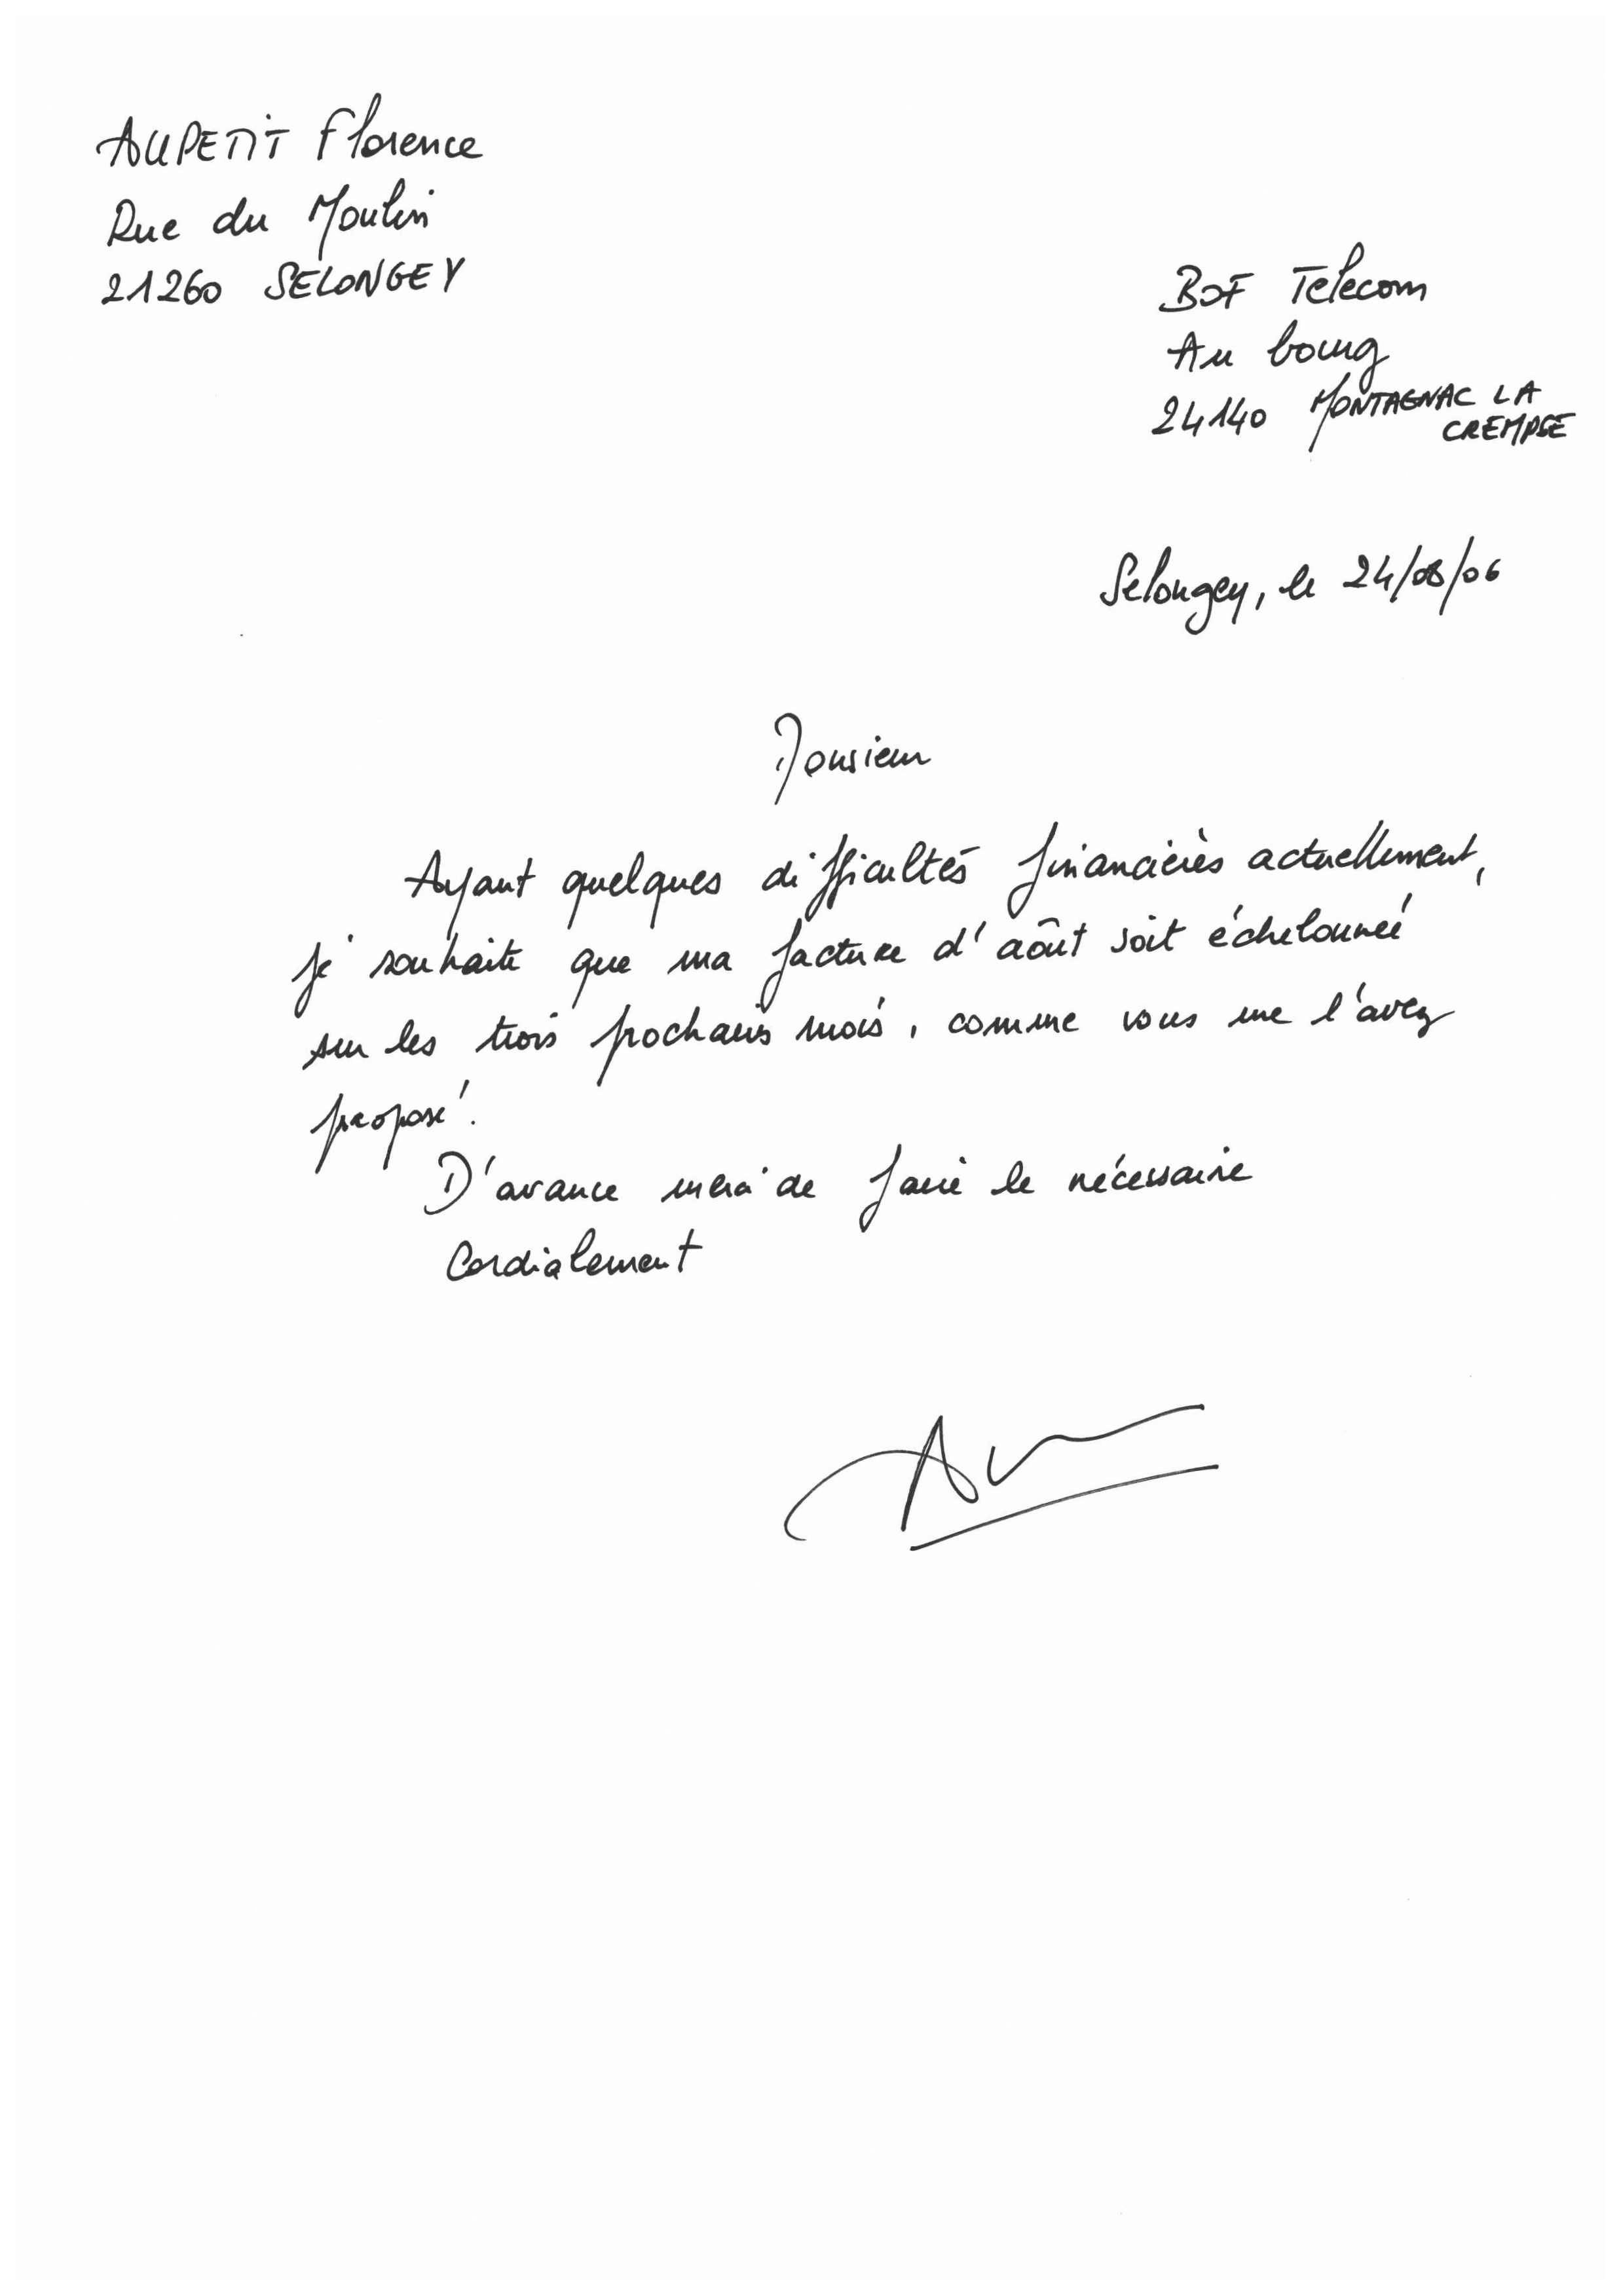 AUPETIT Florence
Rue du Moulin
21260 SELONGEY
BOF Telecom
Au bourg
24140 MONTAGNAC LA
CREMPSE
Selongey, le 24/08/06
Monsieur
Ayant quelques difficultés financières actuellement,
je souhaite que ma facture d'août soit échelonnée
sur les trois prochains mois, comme vous me l'avez
proposé.
D'avance merci de faire le nécessaire
Cordialement